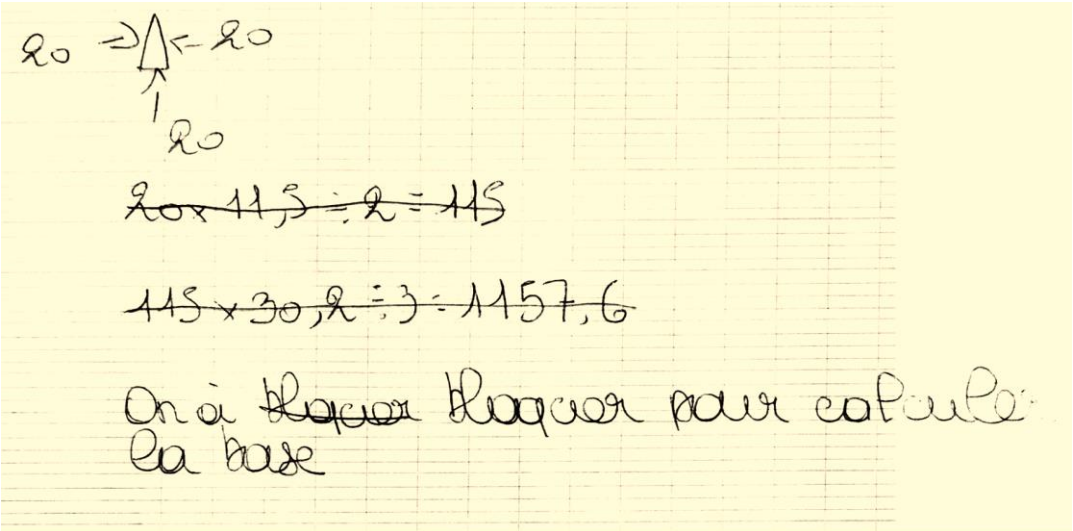 20 => <- 20
20
20 x 11,5 ÷ 2 = 115
115 x 30,2 ÷ 3 = 1157,6
On à bloquer bloquer pour calculé
la base